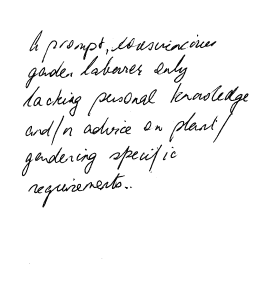 A prompt, conscientious
garden labourer only
lacking personal knowledge
and/or advice on plant/
gardening specific
requirements..